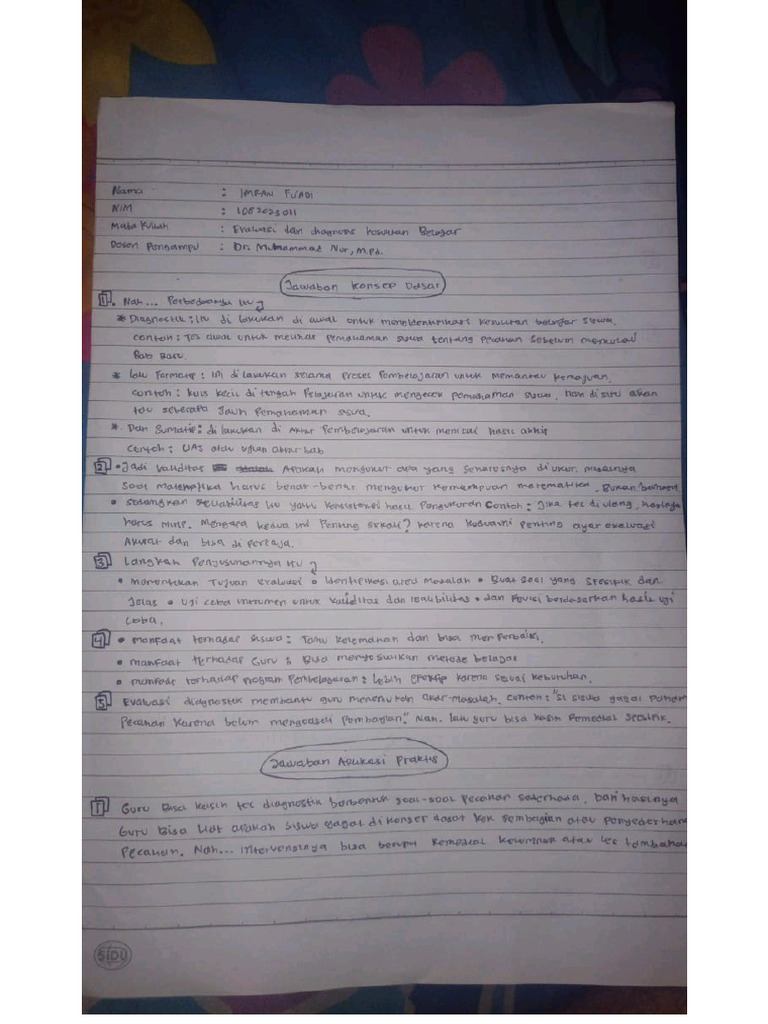 Nama : IMRAN FUADI
NIM : 1052023011
Mata Kuliah : Evaluasi dan diagnosis kesulitan Belajar
Dosen Pengampu : Dr. Muhammad Nur, M.Pd.
Jawaban Konsep Dasar
1. Nah... Perbedaanya itu
* Diagnostik : Itu di lakukan di awal untuk mengidentifikasi kesulitan belajar siswa.
contoh : Tes awal untuk melihat pemahaman siswa tentang pecahan sebelum memulai
Bab Baru.
* lalu Formatif : Ini di lakukan selama proses Pembelajaran untuk memantau kemajuan.
contoh : kuis kecil di tengah Pelajaran untuk mengecek pemahaman siswa, nah disitu akan
tau seberapa Jauh Pemahaman siswa.
* Dan Sumatif : di lakukan di Akhir Pembelajaran untuk menilai hasil akhir
Contoh : UAS atau ujian akhir bab
2 • Jadi Validitas Apakah mengukur apa yang seharusnya di ukur. misalnya
Soal matematika harus benar-benar mengukur kemampuan matematika. Bukan bahasa
• Sedangkan Reliabilitas itu yaitu Konsistensi hasil Pengukuran Contoh : Jika tes di ulang, hasilnya
harus mirip. Mengapa kedua ini Penting sekali? karena keduanya penting agar evaluasi
Akurat dan bisa di percaya.
3 Langkah Penyusunannya itu
• menentukan Tujuan evaluasi • Identifikasi area masalah • Buat soal yang spesifik dan
Jelas • uji coba instrumen untuk validitas dan reliabilitas • dan Revisi berdasarkan hasil uji
coba.
4 • manfaat terhadap siswa : Tahu kelemahan dan bisa memperbaiki.
• manfaat terhadap Guru : Bisa menyesuaikan metode belajar
• manfaat terhadap program Pembelajaran : Lebih efektif karena sesuai kebutuhan.
5 Evaluasi diagnostik membantu guru menemukan akar masalah. Contoh : "Si siswa gagal paham
Pecahan karena belum menguasai Pembagian." Nah. lalu guru bisa kasih Remedial spesifik.
Jawaban Aplikasi Praktis
1 Guru Bisa kasih tes diagnostik berbentuk soal-soal pecahan sederhana, Dari hasilnya
Guru Bisa lihat apakah siswa gagal di konsep dasar kek pembagian atau penyederhana
Pecahan. Nah... intervensinya bisa berupa Remedial kelompok atau les tambahan
SIDU